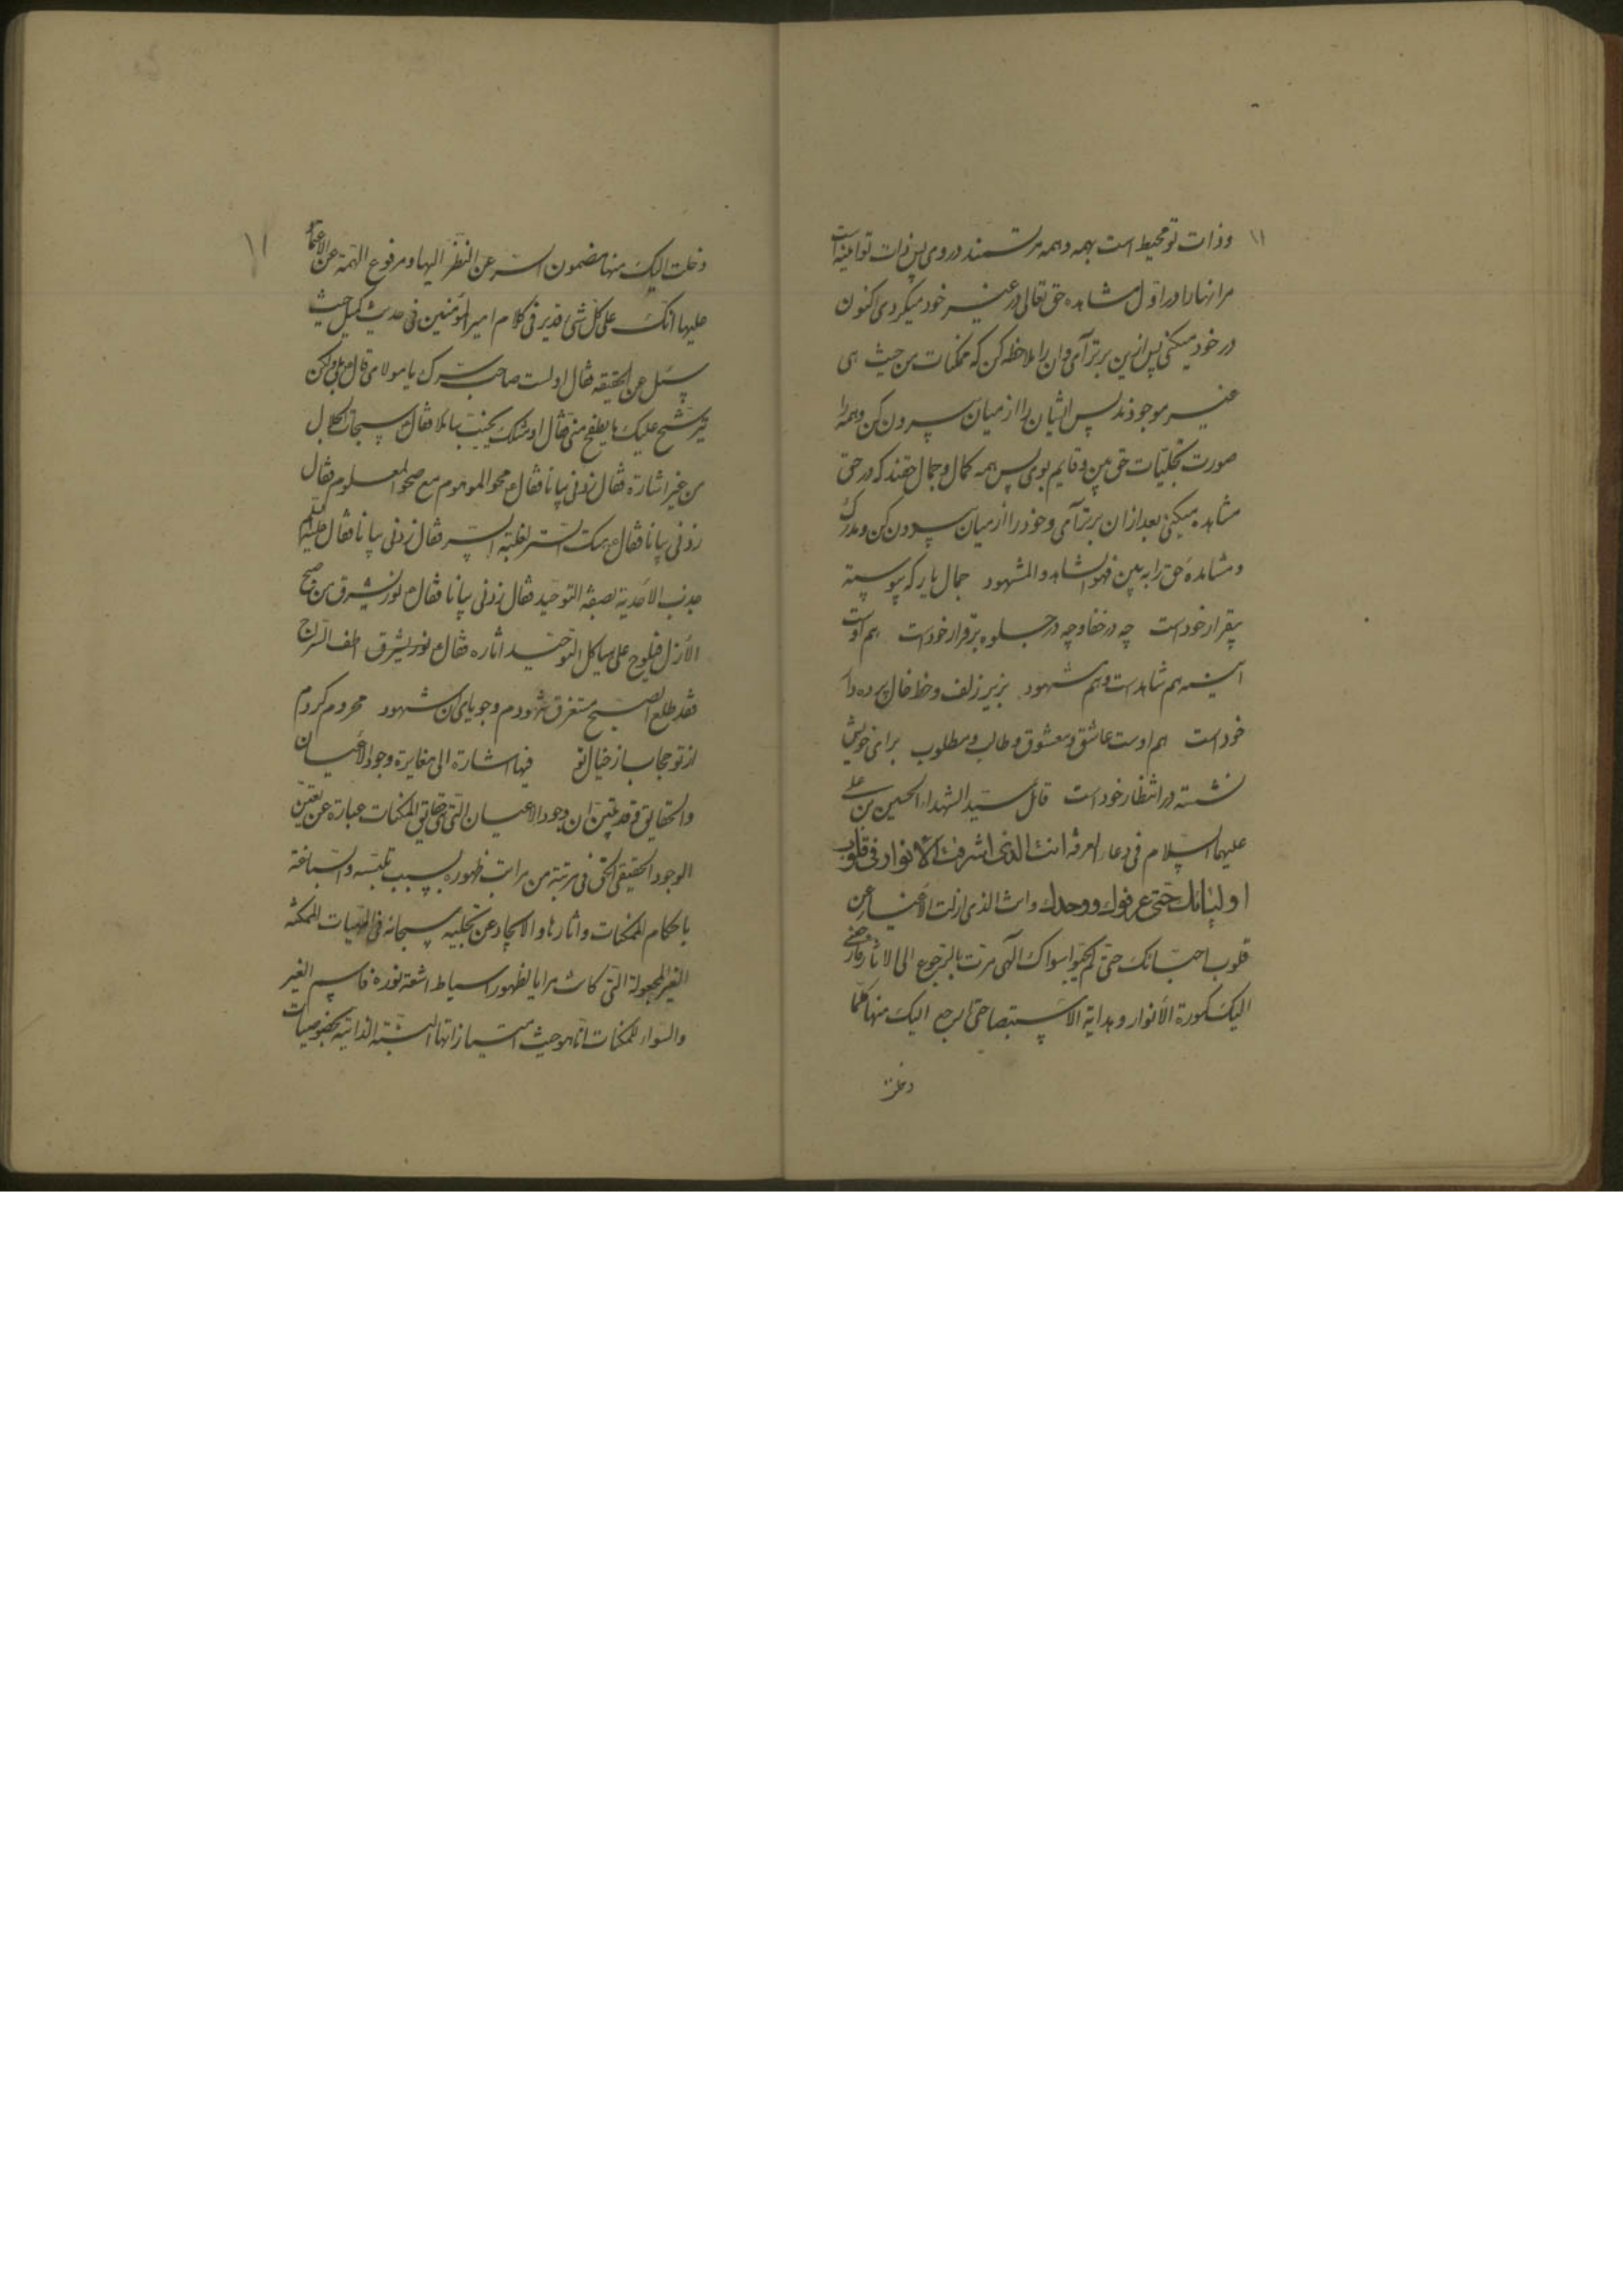 وذات تو محیط است بهمه و همه مرتسمند در وی پس ذات تو آینه است
مر انها را در اول مشاهده حق تعالی در غیر خود میکردی اکنون
در خود میکنی پس ازین برتر آی و ان را ملاحظه کن که ممکنات من حیث هی
غیر موجودند پس ایشان را از میان بیرون کن و همه را
صورت تجلیات حق بین و قایم بوی پس همه کمال و جمال حقند که در حق
مشاهده میکنی بعد ازان برتر آی و خود را از میان بیرون کن و مدرک
و مشاهده حق را به بین فهو الشاهد و المشهود جمال یار که پیوسته
بیقرار خود است چه در خفا و چه در جلوه برقرار خود است هم اوست
آینه هم شاهد است و هم مشهود بزیر زلف و خط خال پرده دار
خود است هم اوست عاشق و معشوق و طالب و مطلوب برای خویش
نشسته در انتظار خود است قال سید الشهداء الحسین بن علی
علیهما السلام فی دعاء العرفه انت الذی اشرقت الانوار فی قلوب
اولیائک حتی عرفوک و وحدوک وانت الذی ازلت الاغیار عن
قلوب احبائک حتی لم یحبوا سواک الهی امرت بالرجوع الی الاثار فارجعنی
الیک بکسوة الانوار و هدایة الاستبصار حتی ارجع الیک منها کما
دخلت
دخلت الیک منها مصون السر عن النظر الیها و مرفوع الهمة عن الاعتماد
علیها انک علی کل شیء قدیر فی کلام امیر المؤمنین فی حدیث کمیل حیث
سئل عن الحقیقه فقال اولست صاحب سرک یا مولای قال بلی ولکن
یترشح علیک ما یطفح منی فقال او مثلک یخیب سائلا فقال سبحات الجلال
من غیر اشارة فقال زدنی بیانا فقال محو الموهوم مع صحو المعلوم فقال
زدنی بیانا فقال هتک الستر لغلبة السر فقال زدنی بیانا فقال
جذب الاحدیة لصفة التوحید فقال زدنی بیانا فقال نور یشرق من صبح
الازل فیلوح علی هیاکل التوحید اثاره فقال نور یشرق اطف السراج
فقد طلع الصبح مستغرق شهودم و جویای شهود محروم کردم
از تو حجاب از خیال تو فیها اشارة الی مغایرة وجود الاعیان
والحقایق قد تبین ان وجود الاعیان التی حقایق الممکنات عبارة عن تعین
الوجود الحقیقی الحق فی مرتبة من مراتب ظهوره بسبب تلبسه و انصباغه
باحکام الممکنات و اثارها و الایجاد عن تجلیه سبحانه فی الماهیات الممکنة
الغیر المجعولة التی کانت مرایا لظهور انبساط اشعة نوره فاسم الغیر
والسواء للممکنات انما هو حیث امتیازاتها النسبیة الذاتیة بخصوصیات